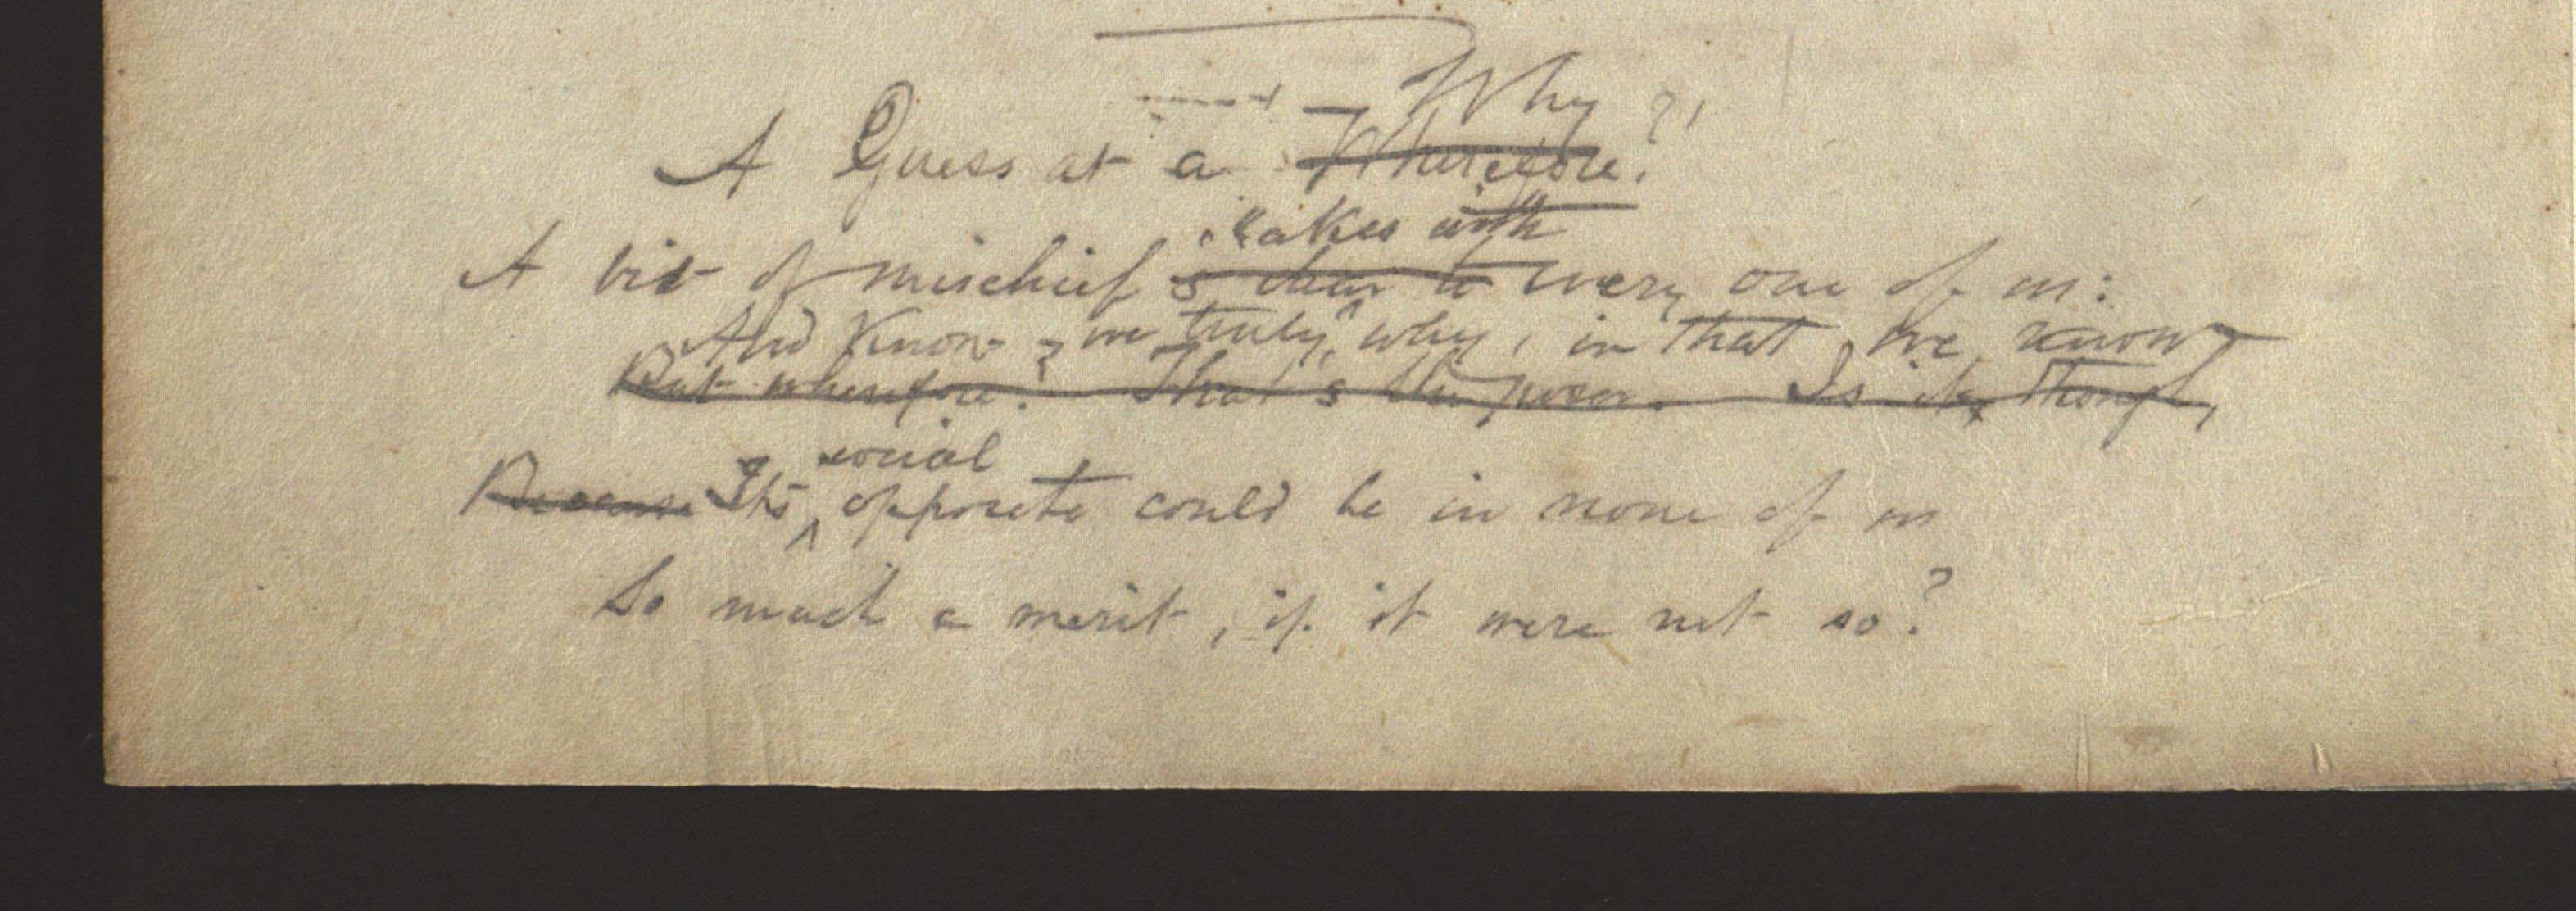 Why ?
A Guess at a Wherefore?
takes with
A bit of mischief is dear to every one of us:
And know we truly, why, in that we know
But wherefore? That's the poser. Is it, though,
social
Because Its opposite could be in none of us
So much a merit, if it were not so?